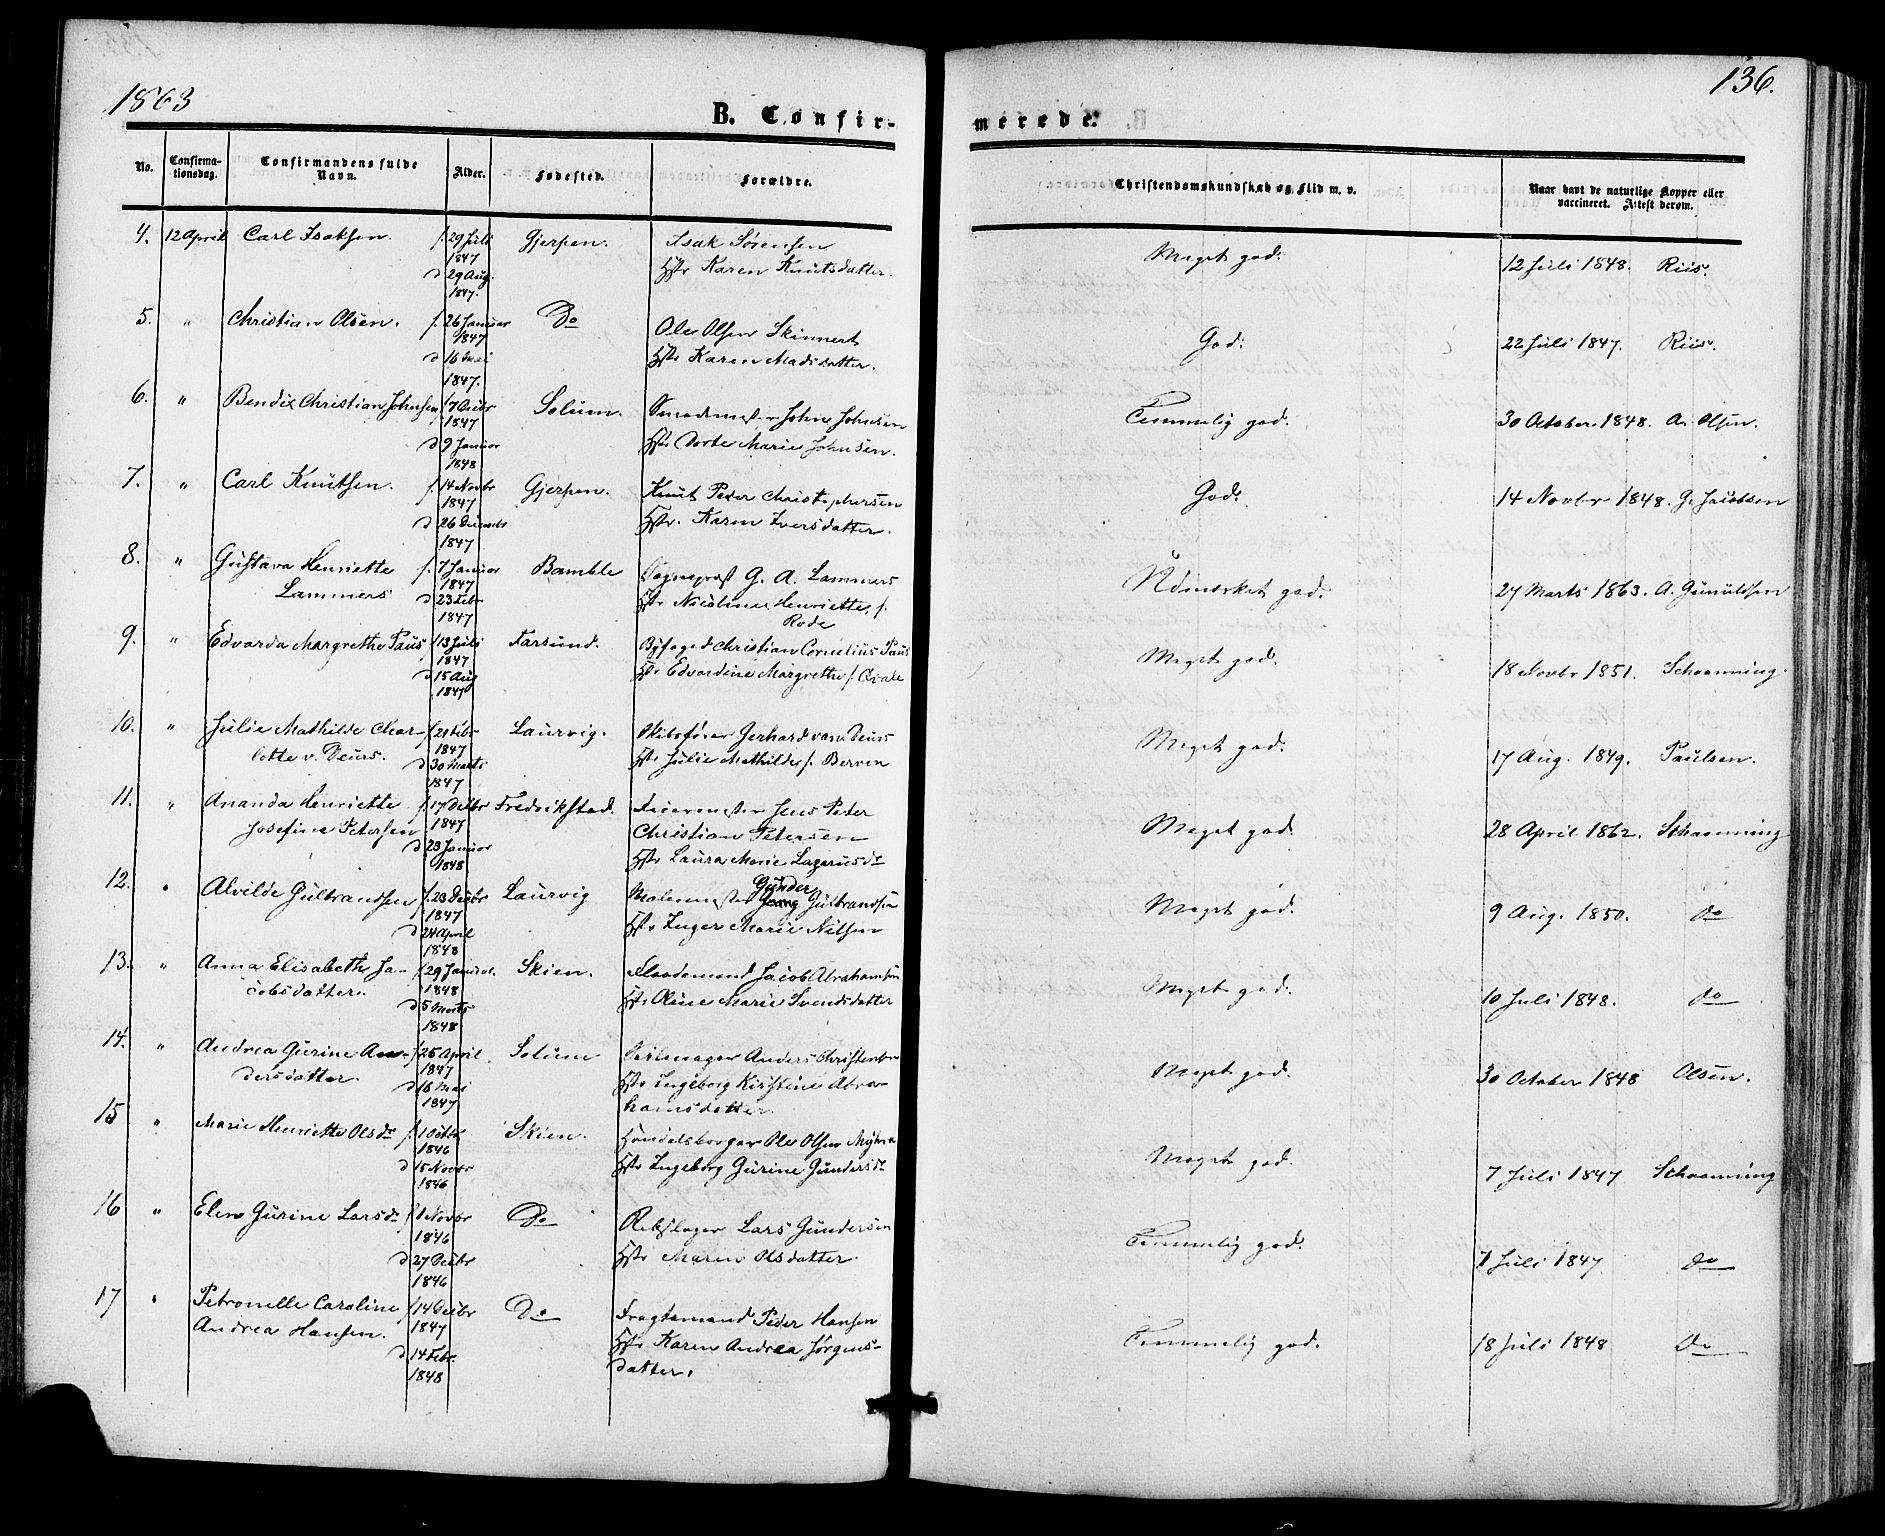 1863
136.
B. Confir-
merede.
No.
Confirma-
tionsdag.
Confirmandens fulde
Navn.
Alder.
Fødested.
Forældre.
Christendomskundskab og Flid m. v.
Naar havt de naturlige Kopper eller
vaccineret. Attest derom.
4. 12 April Carl Isaksen. f. 29 Juli Gjerpen. Isak Sørensen Meget god. 12 Juli 1848. Riis.
1847
d 29 Aug. Hstr Karen Knutsdatter.
1847.
5. " Christian Olsen. f. 26 Januar Do Ole Olsen Skinnert God. 22 Juli 1847. Riis.
1847
d 16 Mai Hstr Karen Madsdatter.
1847.
6. " Bendix Christian Johnsen f 7 Decbr Solum. John Johnsen Temmelig god. 30 October 1848. A. Olsen.
1847
d 9 Januar Hstr Dorte Marie Johnsen.
1848
7. " Carl Knutsen. f. 14 Novbr Gjerpen. Knut Peder Christophersen God. 14 Novbr 1848. G. Jacobsen
1847
d 26 Decemb Hstr. Karen Iversdatter.
1847
8. " Gustava Henriette f. 7 Januar Bamble Sogneprest G. A. Lammers Udmærket god. 27 Marts 1863. A. Gunuldsen
Lammers 1847
d 23 Febr Hstr Nicoline Henriette, f.
1847 Rode
9. " Edvarda Margrethe Paus f 13 Juli Farsund. Byfoged Christian Cornelius Paus Meget god. 18 Novbr 1851. Schaanning.
1847
d 15 Aug Hstr Edvardine Margrethe f. Qvale
1847
10. " Julie Mathilde Char- f 21 Febr Laurvig. Skibsfører Gerhard van Deurs Meget god. 17 Aug. 1849. Paulsen.
lotte v. Deurs. 1847
d 30 Marts Hstr Julie Mathilde f. Berven
1847
11. " Ananda Henriette f 17 Decbr Fredrikstad. Jens Peder Meget god. 28 April 1862. Schaanning
Josefine Petersen 1847 Christian Petersen
d 23 Januar Hstr Laura Marie Lazarusdr
1848
12. " Alvilde Gulbrandsen f. 23 Decbr Laurvig Malermester Gunder Gulbrandsen Meget god. 9 Aug. 1850. do
1847
d 24 April Hstr Inger Marie Nilsen
1848
13. " Anna Elisabeth Ja- f 29 Januar. Skien. Flaademand Jacob Abrahamsen Meget god. 10 Juli 1848. do
cobsdatter. 1848
d 5 Marts Hstr Oline Marie Svendsdatter
1848
14. " Andrea Gurine An- f 25 April Solum Seilmager Anders Christensen Meget god. 30 October 1848 Olsen.
dersdatter. 1847
d 16 Mai Hstr Ingeborg Kirstine Abra-
1847 hamsdatter.
15 " Marie Henriette Olsdr f 1 Octbr Skien. Handelsborger Ole Olsen Myhra Meget god. 7 Juli 1847 Schaanning
1846
d 15 Novbr Hstr Ingeborg Gurine Gundersdr
1846
16 " Elen Gurine Larsdr f 1 Novbr Do Rebslager Lars Gundersen Temmelig god. 7 Juli 1847 do
1846
d 27 Decbr Hstr Maren Olsdatter.
1846
17 " Petronelle Caroline f 14 Decbr Do Fragtemand Peder Hansen Temmelig god. 18 Juli 1848 do
Andrea Hansen. 1847
d 14 Febr. Hstr Karen Andrea Jørgens-
1848 datter.